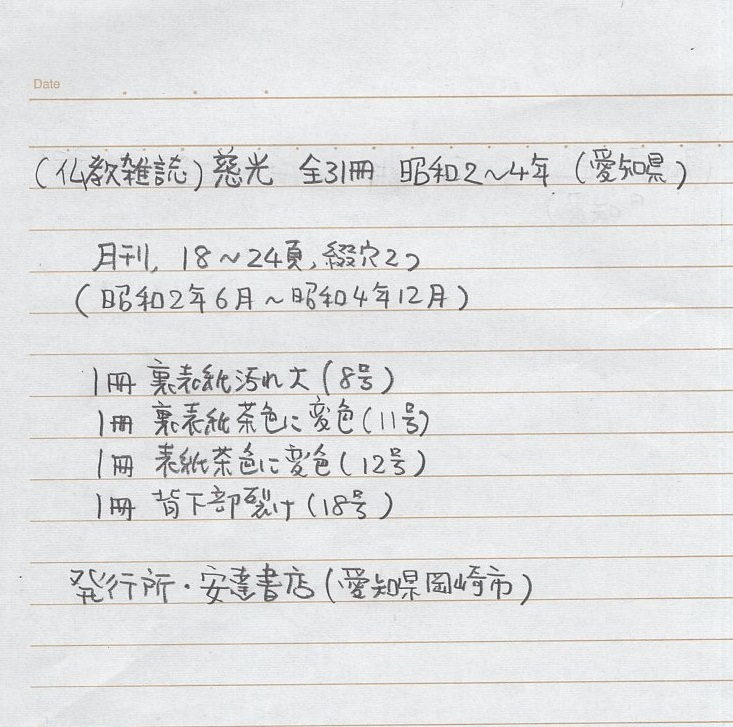 Date
(仏教雑誌)慈光 全31冊 昭和2～4年 (愛知県)
月刊, 18～24頁, 綴穴2つ
(昭和2年6月～昭和4年12月)
1冊 裏表紙汚れ大(8号)
1冊 裏表紙茶色に変色(11号)
1冊 表紙茶色に変色(12号)
1冊 背下部裂け(18号)
発行所・安達書店(愛知県岡崎市)